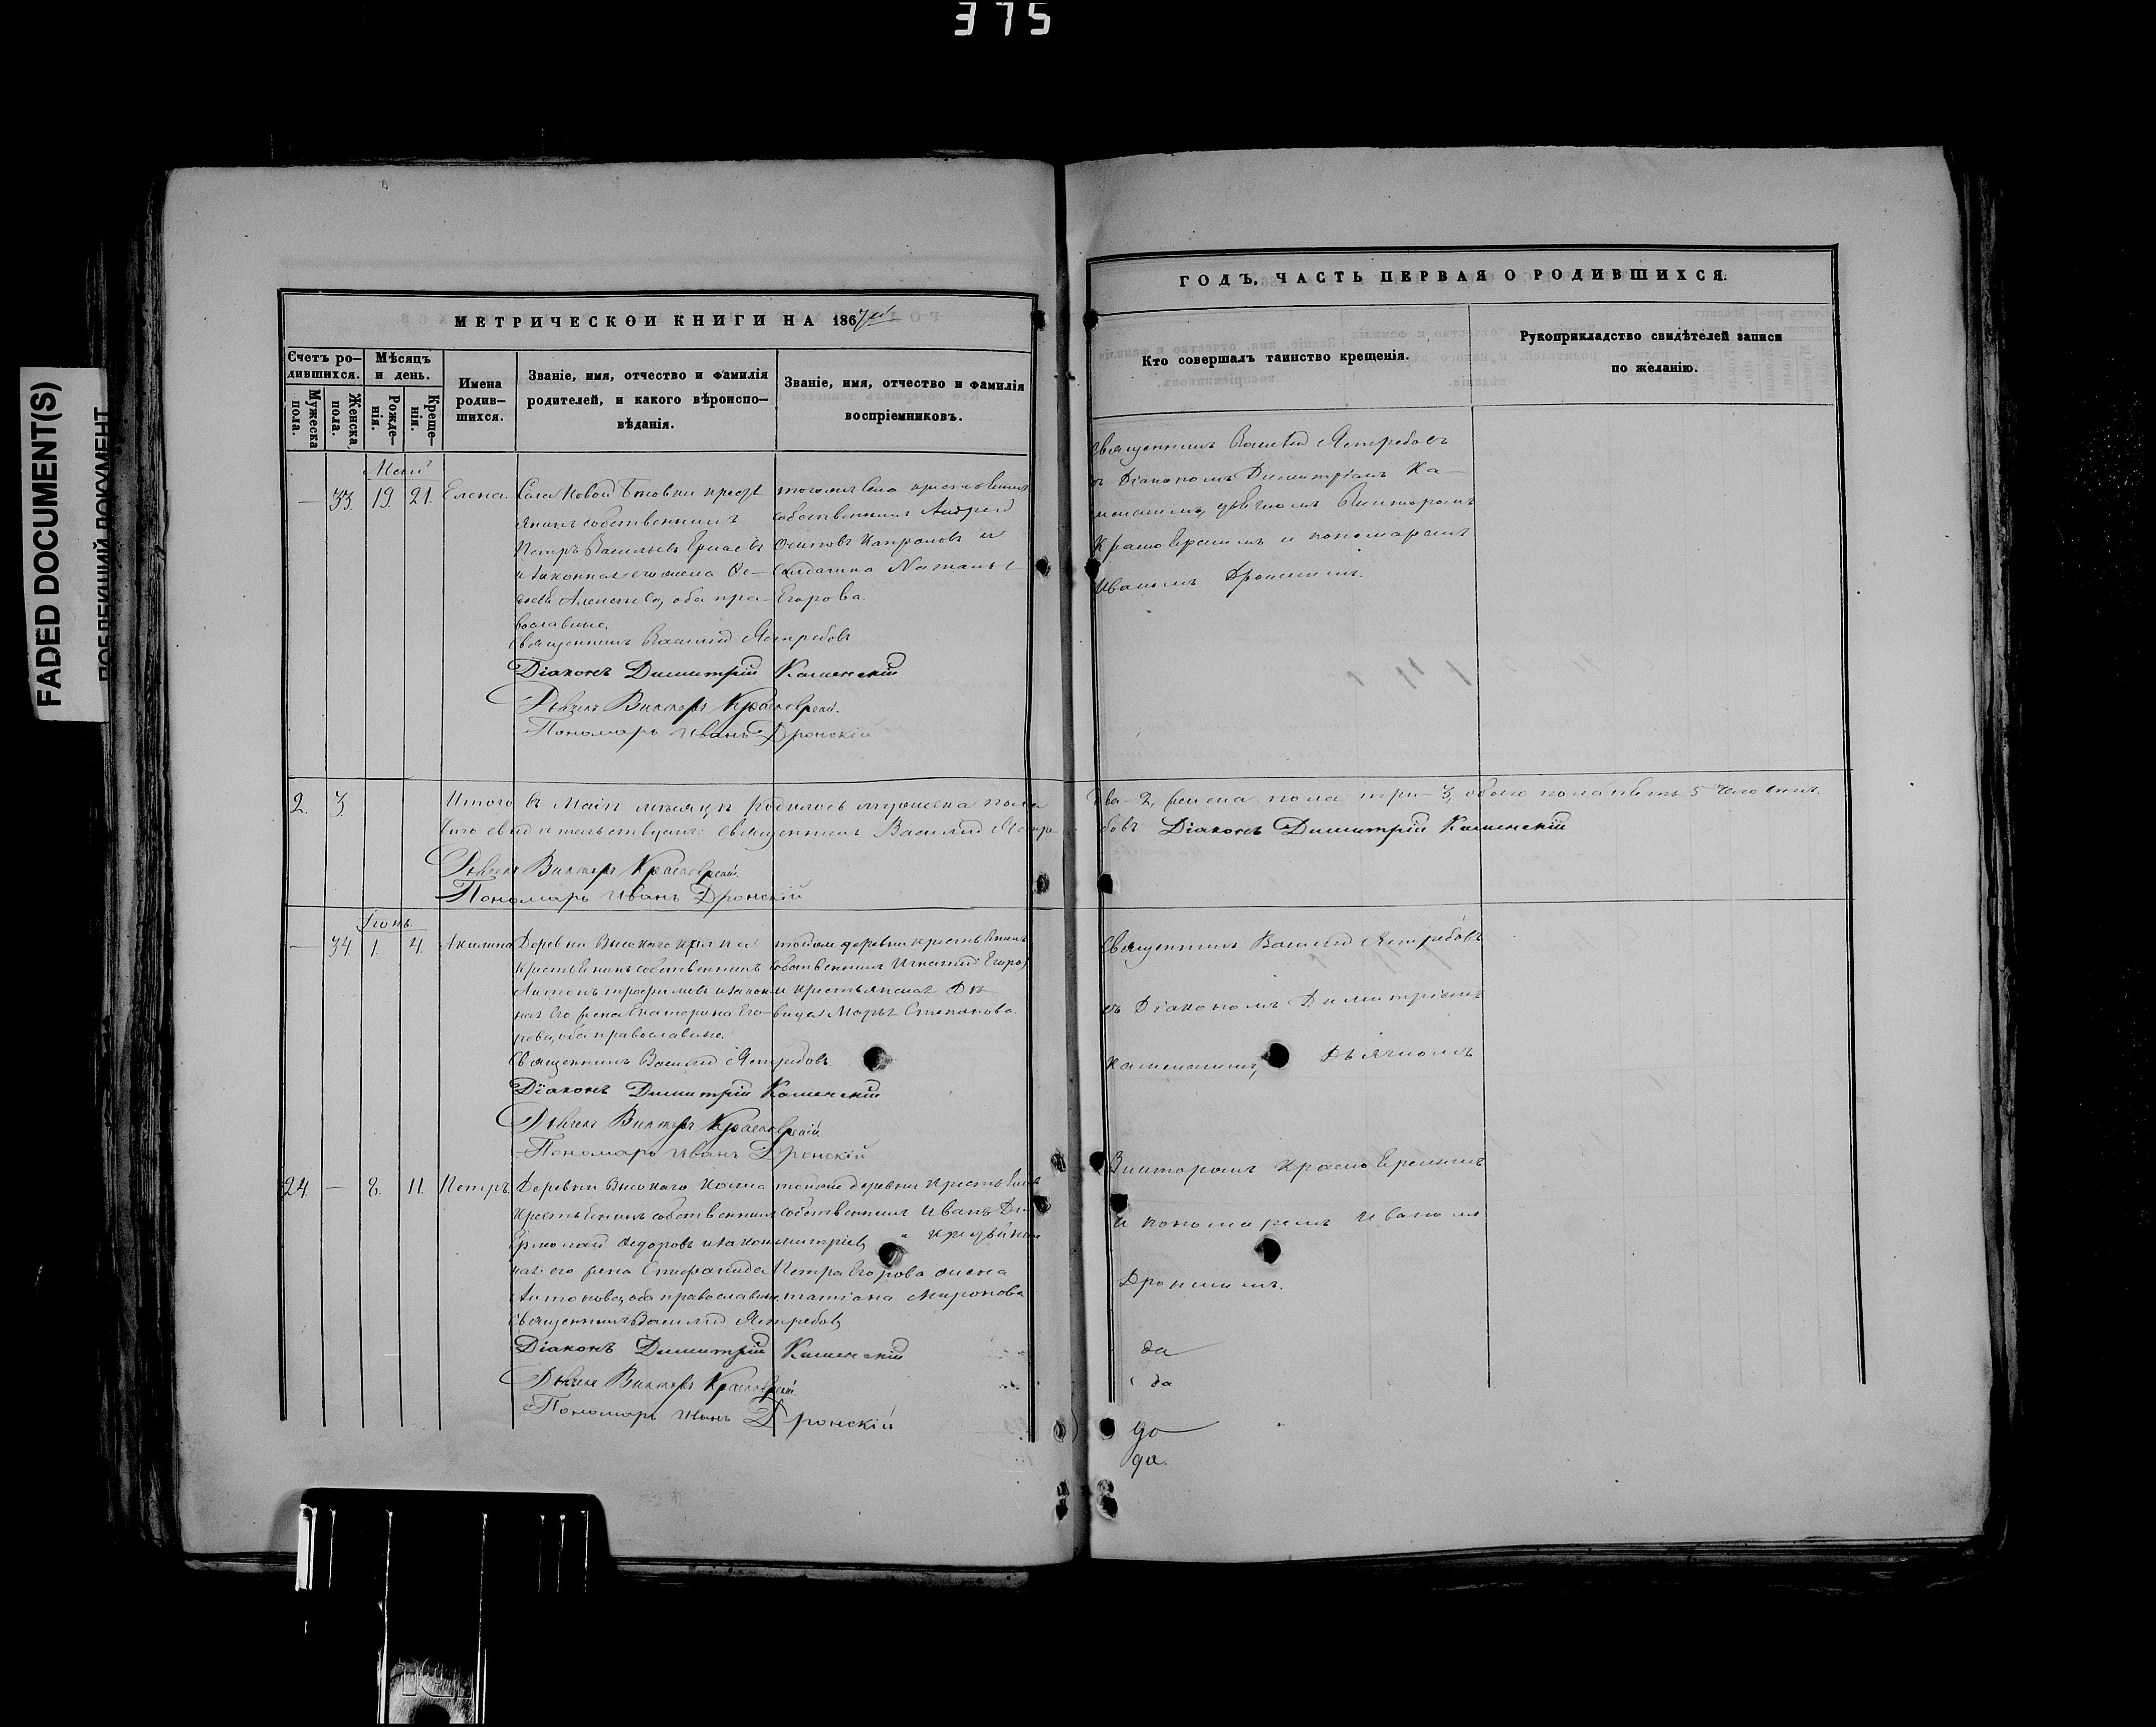 375
FADED DOCUMENT(S)
МЕТРИЧЕСКОЙ КНИГИ НА 1867
ГОДЪ, ЧАСТЬ ПЕРВАЯ О РОДИВШИХСЯ.
Счетъ ро-
дившихся.
Мужеска
пола.
Женска
пола.
Мѣсяцъ
и день.
Рожде-
нія.
Креще-
нія.
Имена
родив-
шихся.
Званіе, имя, отчество и фамилія
родителей, и какого вѣроиспо-
вѣданія.
Званіе, имя, отчество и фамилія
воспріемниковъ.
Кто совершалъ таинство крещенія.
Рукоприкладство свидѣтелей записи
по желанію.
Май
— 33. 19. 21. Елена.
Села Новой
собственникъ
Петръ Васильевъ
и законная его жена Ѳе-
оба пра-
вославные.
Священникъ Василій Ястребовъ
Діаконъ Димитрій Каменскій
Дьячекъ Викторъ
Пономарь Иванъ Дронскій
собственникъ Андрей
Осиповъ и
Солдатка
Егорова.
Священникъ Василій Ястребовъ
съ Діакономъ Димитріемъ Ка-
менскимъ, Викторомъ
и пономаремъ
Иваномъ Дронскимъ.
2. 3. Итого въ Маѣ мѣсяцѣ родилось мужеска пола два- 2, женска пола три- 3, обоего пола пять 5
свидѣтельствуемъ: Священникъ Василій Ястребовъ Діаконъ Димитрій Каменскій
Дьячекъ Викторъ
Пономарь Иванъ Дронскій
Іюнь.
— 34. 1. 4. Акилина
Деревни Высокаго
крестьянинъ собственникъ
Антонъ Трофимовъ и закон-
ная его жена Екатерина Его-
рова, оба православные.
Священникъ Василій Ястребовъ
Діаконъ Димитрій Каменскій
Дьячекъ Викторъ
Пономарь Иванъ Дронскій
тойже деревни крестьянинъ
собственникъ Игнатій Егоровъ
и крестьянская дѣ-
вица Марья Степанова.
Священникъ Василій Ястребовъ
съ Діакономъ Димитріемъ
Каменскимъ, Дьячкомъ
Викторомъ
и пономаремъ Иваномъ
Дронскимъ.
24. — 8. 11. Петръ.
Деревни Высокаго
крестьянинъ собственникъ
Ермолай Ѳедоровъ и закон-
ная его жена Стефанида
Антонова, оба православные.
Священникъ Василій Ястребовъ
Діаконъ Димитрій Каменскій
Дьячекъ Викторъ
Пономарь Иванъ Дронскій
тойже деревни крестьянинъ
собственникъ Иванъ Ди-
митріевъ
Петра Егорова жена
Татіана Миронова
да
да
да
да.